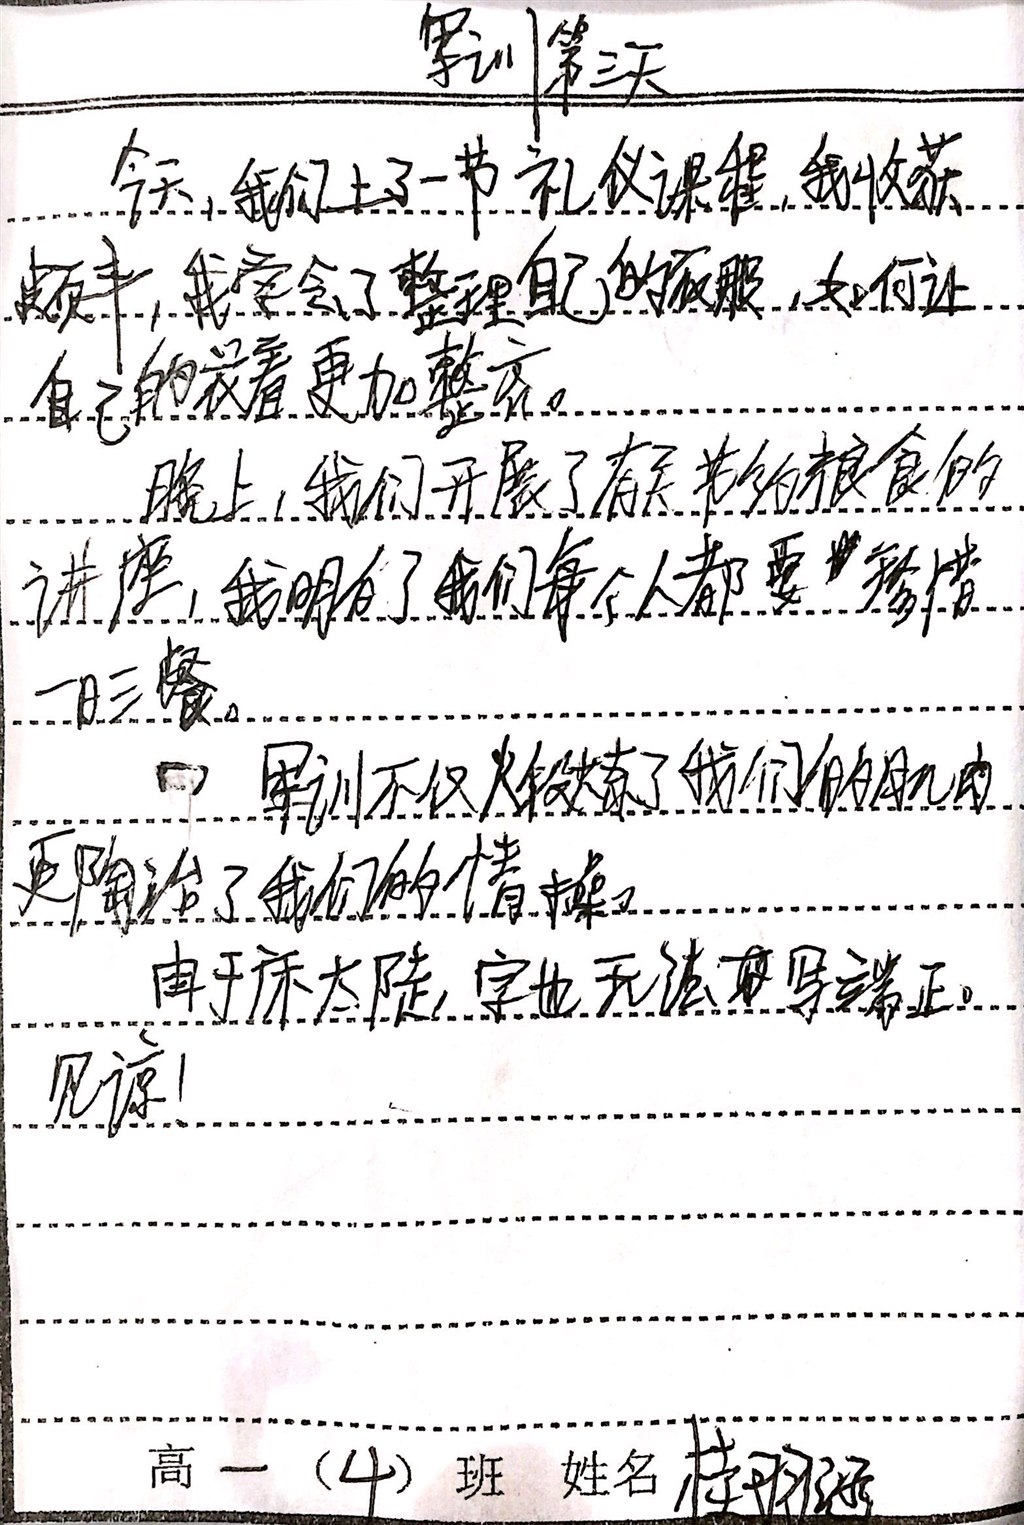 军训第三天
今天,我们上了一节礼仪课程,我收获
颇丰,我学会了整理自己的衣服,如何让
自己的衣着更加整齐。
晚上,我们开展了有关节约粮食的
讲座,我明白了我们每个人都要珍惜
一日三餐。
军训不仅煅炼了我们的肌肉
更陶冶了我们的情操。
由于床太陡,字也无法写端正。
见谅!
高一(4)班 姓名桂